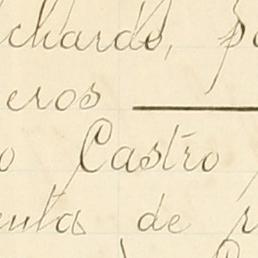 chardo, 
eros
o Castro
enta de